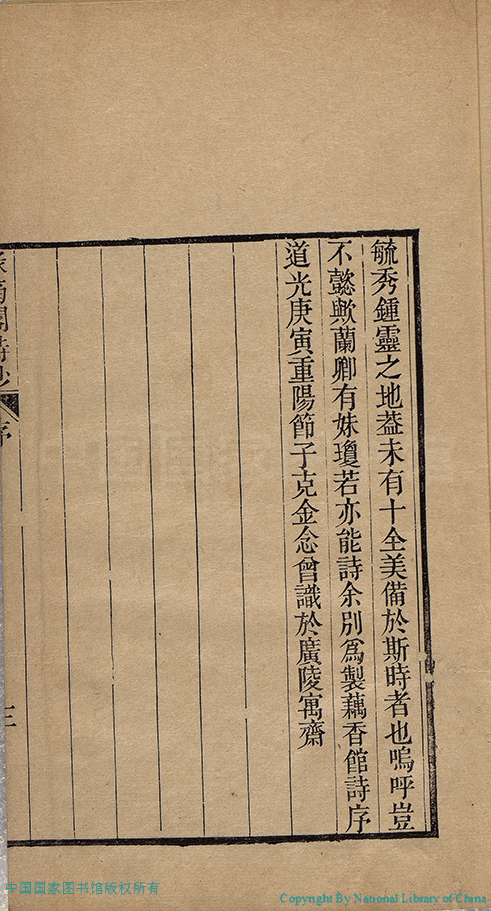 毓秀鍾靈之地葢未有十全美備於斯時者也嗚呼豈
不懿歟蘭卿有妹瓊若亦能詩余別爲製藕香館詩序
道光庚寅重陽節子克金念曾識於廣陵寓齋
閣詩鈔
序
三
中国国家图书馆版权所有
Copyright By National Library of China